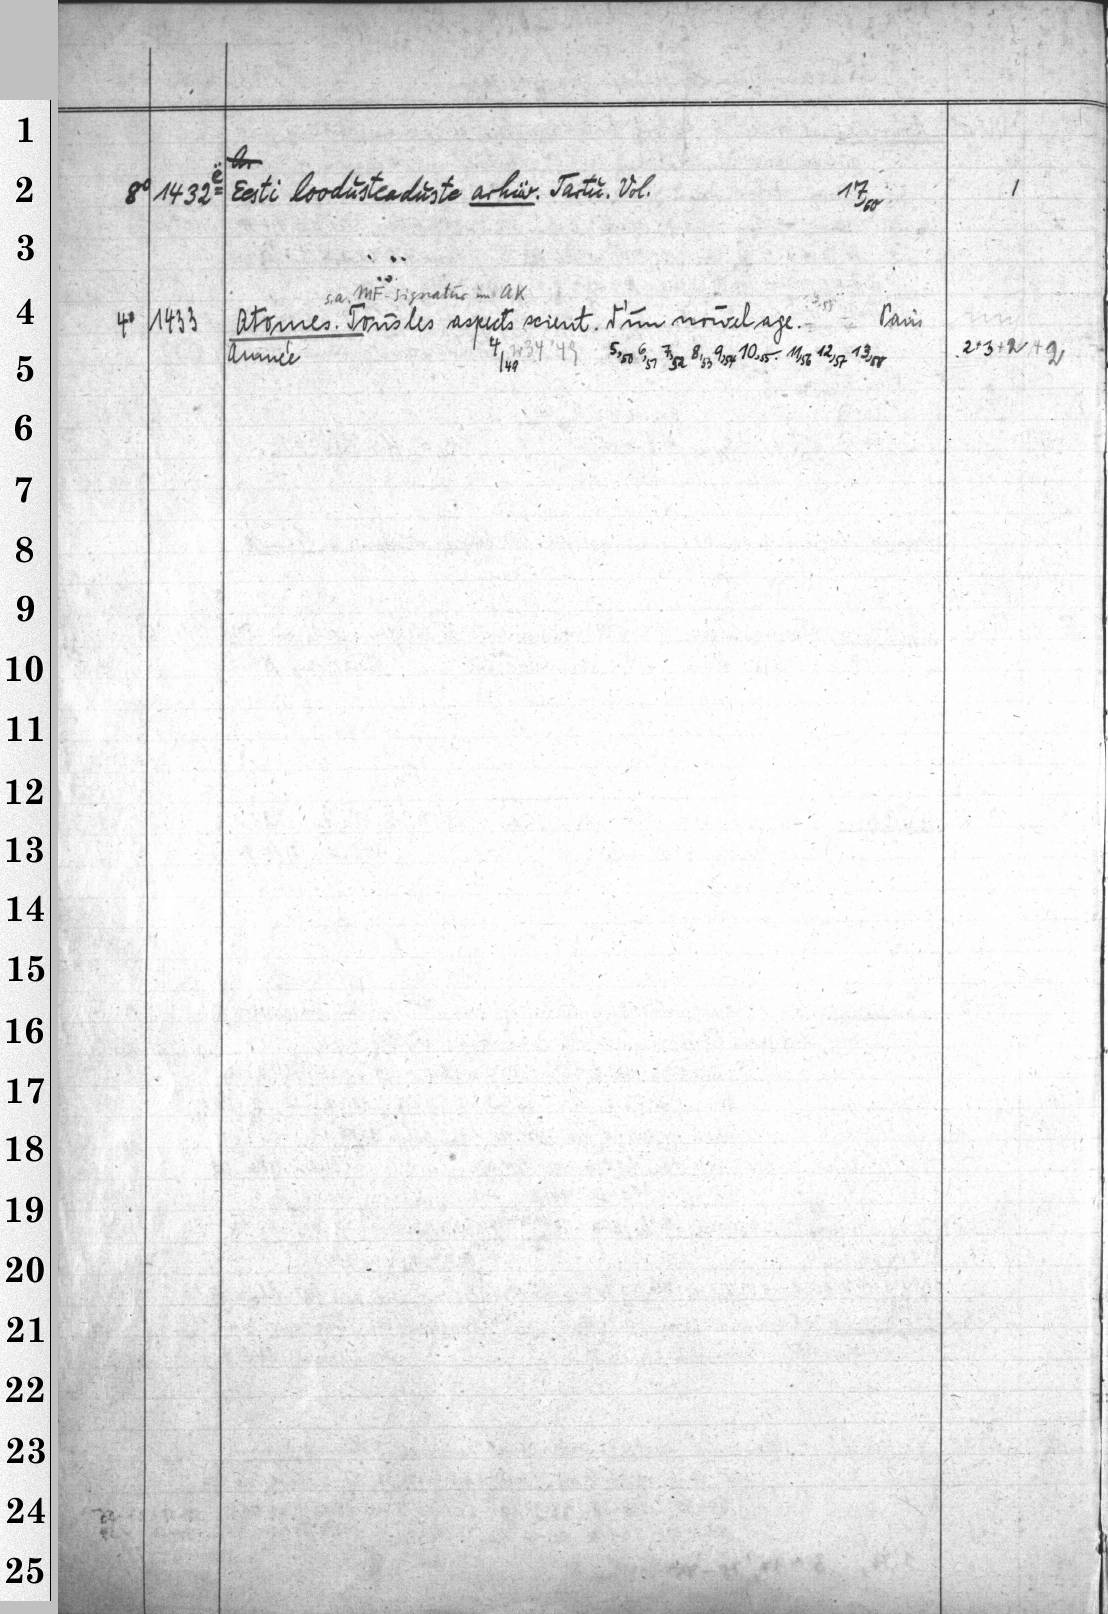 1
2 8° 1432ë Eesti loodusteaduste arhiiv. Tartu. Vol. 17,60 1
3
s.a. MF-Signatur im AK
4 4° 1433 Atomes. Tous les aspects scient. d'un nouvel age. Paris
5 Année 4/49 5,50 6,51 7,52 8,53 9,54 10,55. 11,56 12,57 13,58 2+3+2+2
6
7
8
9
10
11
12
13
14
15
16
17
18
19
20
21
22
23
24
25